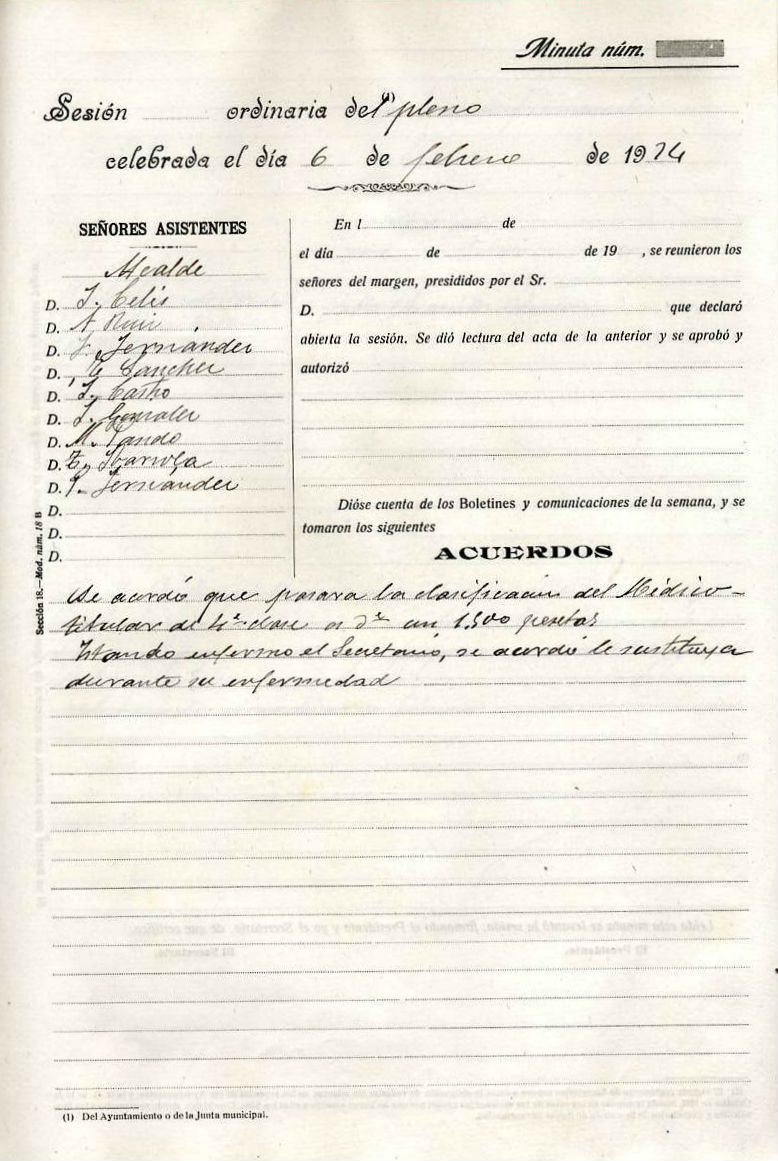 Minuta núm.
Sesión ordinaria del (1) pleno
celebrada el día 6 de febrero de 1924
SEÑORES ASISTENTES
Alcalde
D. J. Celis
D. A. Ruiz
D. Fernández
D. E Sanchez
D. J. Castro
D. J. Gonzalez
D. M. Pando
D. Ibarrola
D. J. Fernández
D.
D.
D.
En l de
el día de de 19 , se reunieron los
señores del margen, presididos por el Sr.
D. que declaró
abierta la sesión. Se dió lectura del acta de la anterior y se aprobó y
autorizó
Dióse cuenta de los Boletines y comunicaciones de la semana, y se
tomaron los siguientes
ACUERDOS
Se acordó que pasara la clasificación del Médico-
titular de 4ª clase a 3ª con 1500 pesetas
Estando enfermo el Secretario, se acordó le sustituya
durante su enfermedad
Sección 18.—Mod. núm. 18 B
(1) Del Ayuntamiento o de la Junta municipal.